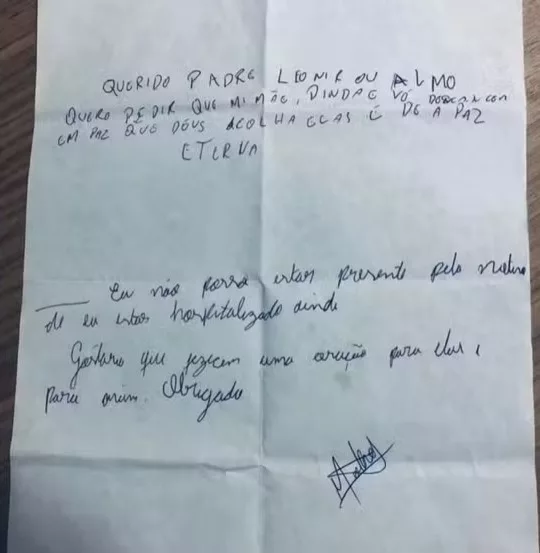 QUERIDO PADRE LEONIR OU ALMO
QUERO PEDIR QUE MI MÃE, DINDA E VÓ
EM PAZ QUE DEUS ACOLHA ELAS E DE A PAZ
ETERNA
Eu não posso estar presente pelo motivo
de eu estar hospitalizado ainda
Gostaria que fizecem uma oração para elas e
para mim. Obrigado